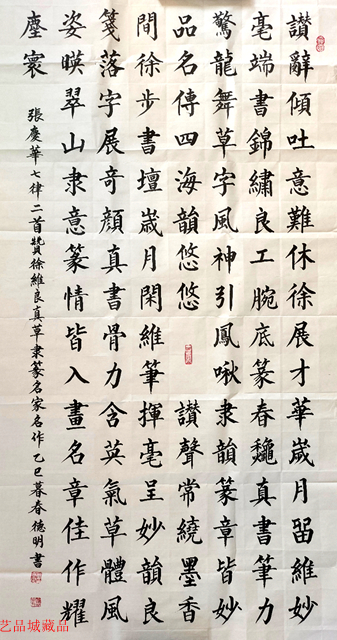 讚辭傾吐意難休徐展才華歲月留維妙
毫端書錦繡良工腕底篆春龝真書筆力
驚龍舞草字風神引鳳啾隶韻篆章皆妙
品名傳四海韻悠悠 讚聲常繞墨香
間徐步書壇歲月閑維筆揮毫呈妙韻良
箋落字展奇顔真書骨力含英氣草體風
姿暎翠山隶意篆情皆入畫名章佳作耀
塵寰
張慶華七律二首贊徐維良真草隶篆名家名作乙巳暮春德明書
艺品城藏品